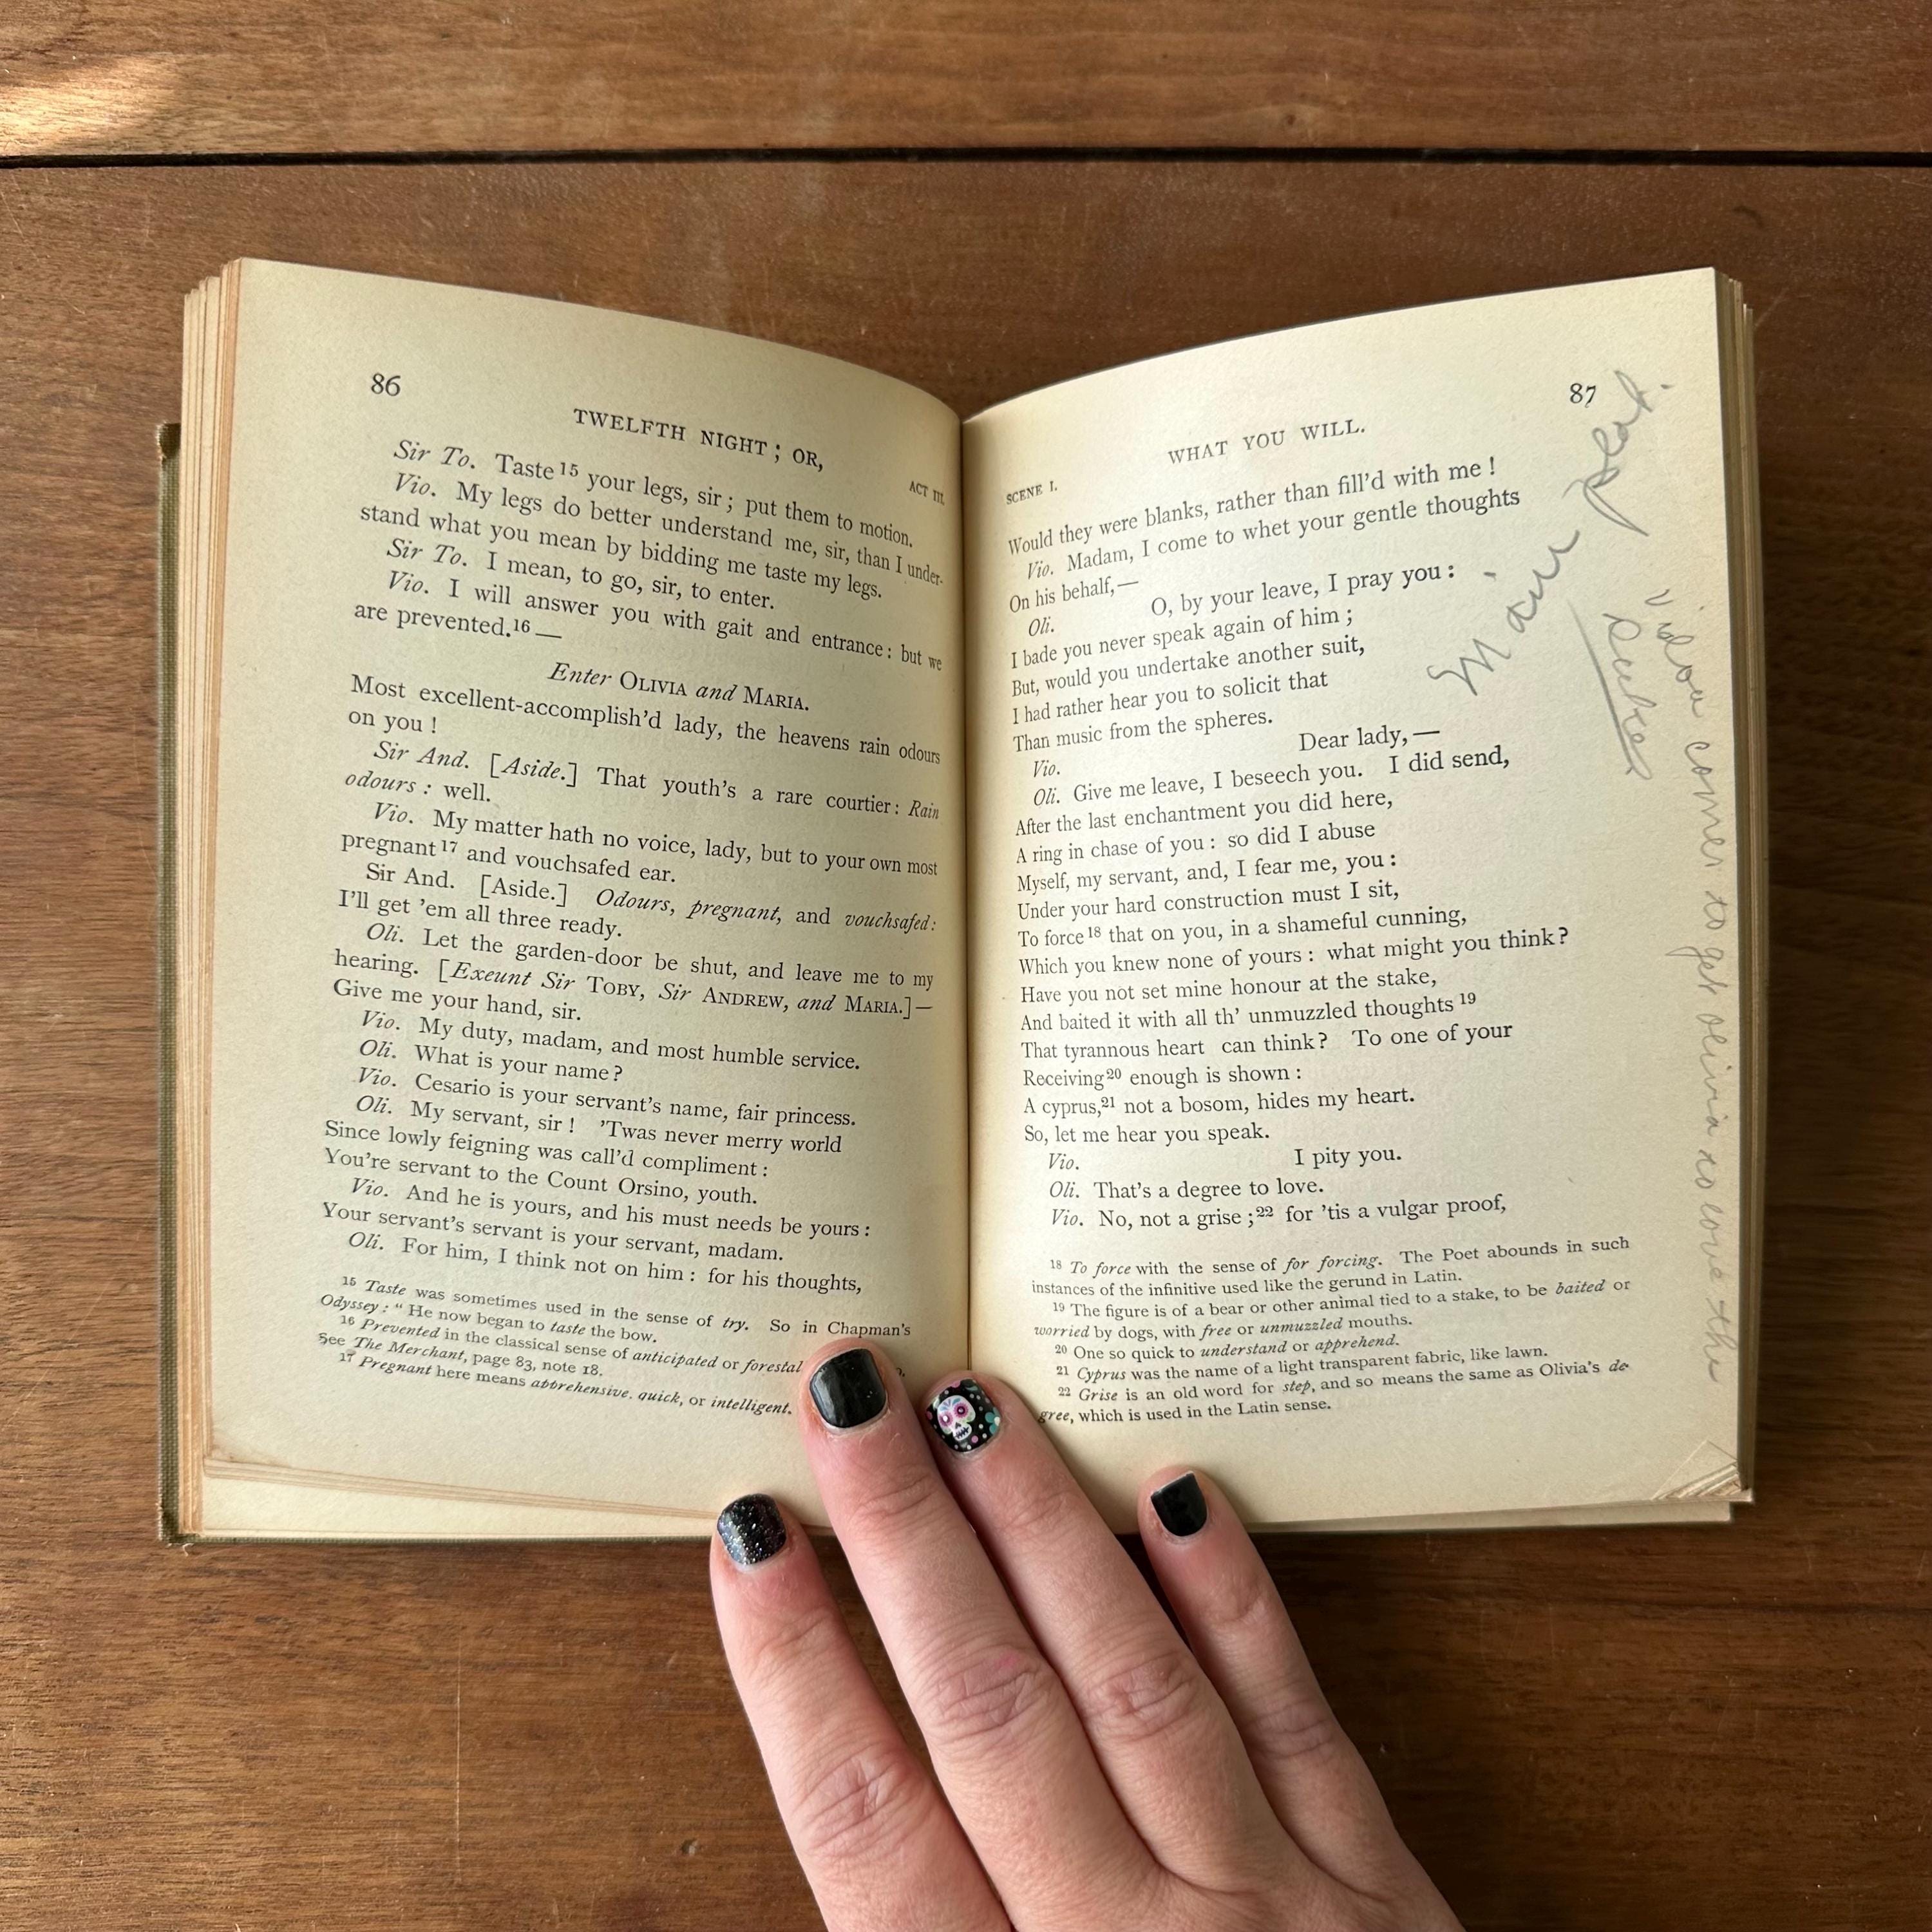 86
TWELFTH NIGHT ; OR,
ACT III.
Sir To. Taste15 your legs, sir ; put them to motion.
Vio. My legs do better understand me, sir, than I under-
stand what you mean by bidding me taste my legs.
Sir To. I mean, to go, sir, to enter.
Vio. I will answer you with gait and entrance : but we
are prevented.16 —
Enter OLIVIA and MARIA.
Most excellent-accomplish'd lady, the heavens rain odours
on you !
Sir And. [Aside.] That youth's a rare courtier : Rain
odours : well.
Vio. My matter hath no voice, lady, but to your own most
pregnant17 and vouchsafed ear.
Sir And. [Aside.] Odours, pregnant, and vouchsafed :
I'll get 'em all three ready.
Oli. Let the garden-door be shut, and leave me to my
hearing. [Exeunt Sir TOBY, Sir ANDREW, and MARIA.] —
Give me your hand, sir.
Vio. My duty, madam, and most humble service.
Oli. What is your name ?
Vio. Cesario is your servant's name, fair princess.
Oli. My servant, sir ! 'Twas never merry world
Since lowly feigning was call'd compliment :
You're servant to the Count Orsino, youth.
Vio. And he is yours, and his must needs be yours :
Your servant's servant is your servant, madam.
Oli. For him, I think not on him : for his thoughts,
15 Taste was sometimes used in the sense of try. So in Chapman's
Odyssey : " He now began to taste the bow.
16 Prevented in the classical sense of anticipated or forestal
See The Merchant, page 83, note 18.
17 Pregnant here means apprehensive, quick, or intelligent.
87
WHAT YOU WILL.
SCENE I.
Would they were blanks, rather than fill'd with me !
Vio. Madam, I come to whet your gentle thoughts
On his behalf, —
Oli. O, by your leave, I pray you :
I bade you never speak again of him ;
But, would you undertake another suit,
I had rather hear you to solicit that
Than music from the spheres.
Vio. Dear lady, —
Oli. Give me leave, I beseech you. I did send,
After the last enchantment you did here,
A ring in chase of you : so did I abuse
Myself, my servant, and, I fear me, you :
Under your hard construction must I sit,
To force18 that on you, in a shameful cunning,
Which you knew none of yours : what might you think ?
Have you not set mine honour at the stake,
And baited it with all th' unmuzzled thoughts19
That tyrannous heart can think ? To one of your
Receiving20 enough is shown :
A cyprus,21 not a bosom, hides my heart.
So, let me hear you speak.
Vio. I pity you.
Oli. That's a degree to love.
Vio. No, not a grise ;22 for 'tis a vulgar proof,
18 To force with the sense of for forcing. The Poet abounds in such
instances of the infinitive used like the gerund in Latin.
19 The figure is of a bear or other animal tied to a stake, to be baited or
worried by dogs, with free or unmuzzled mouths.
20 One so quick to understand or apprehend.
21 Cyprus was the name of a light transparent fabric, like lawn.
22 Grise is an old word for step, and so means the same as Olivia's de-
gree, which is used in the Latin sense.
Main plot.
comes to get Olivia to love the